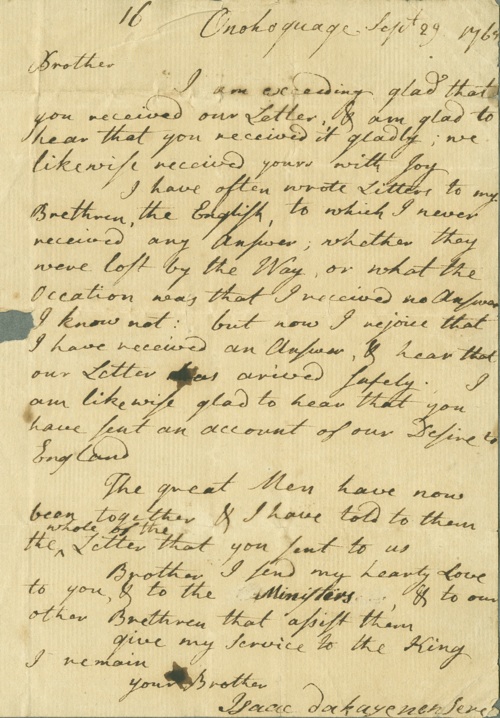 16
Onohoquage Sept 29 176
Brother
I am exceeding glad that
you received our Letter, & am glad to
hear that you received it gladly; we
likewise received yours with Joy
I have often wrote Letters to my
Brethren, the English, to which I never
received any Answer; whether they
were lost by the Way, or what the
Occation was that I received no Answer
I know not: but now I rejoice that
I have received an Answer, & hear that
our Letter has arived safely. I
am likewise glad to hear that you
have sent an account of our Desire to
England
The great Men have now
been together & I have told to them
whole of the
the ^ Letter that you sent to us
Brother I send my hearty Love
to you, & to the Ministers, & to our
other Brethren that assist them
give my Service to the King
I remain
your Brother
Isaac dakayenensere